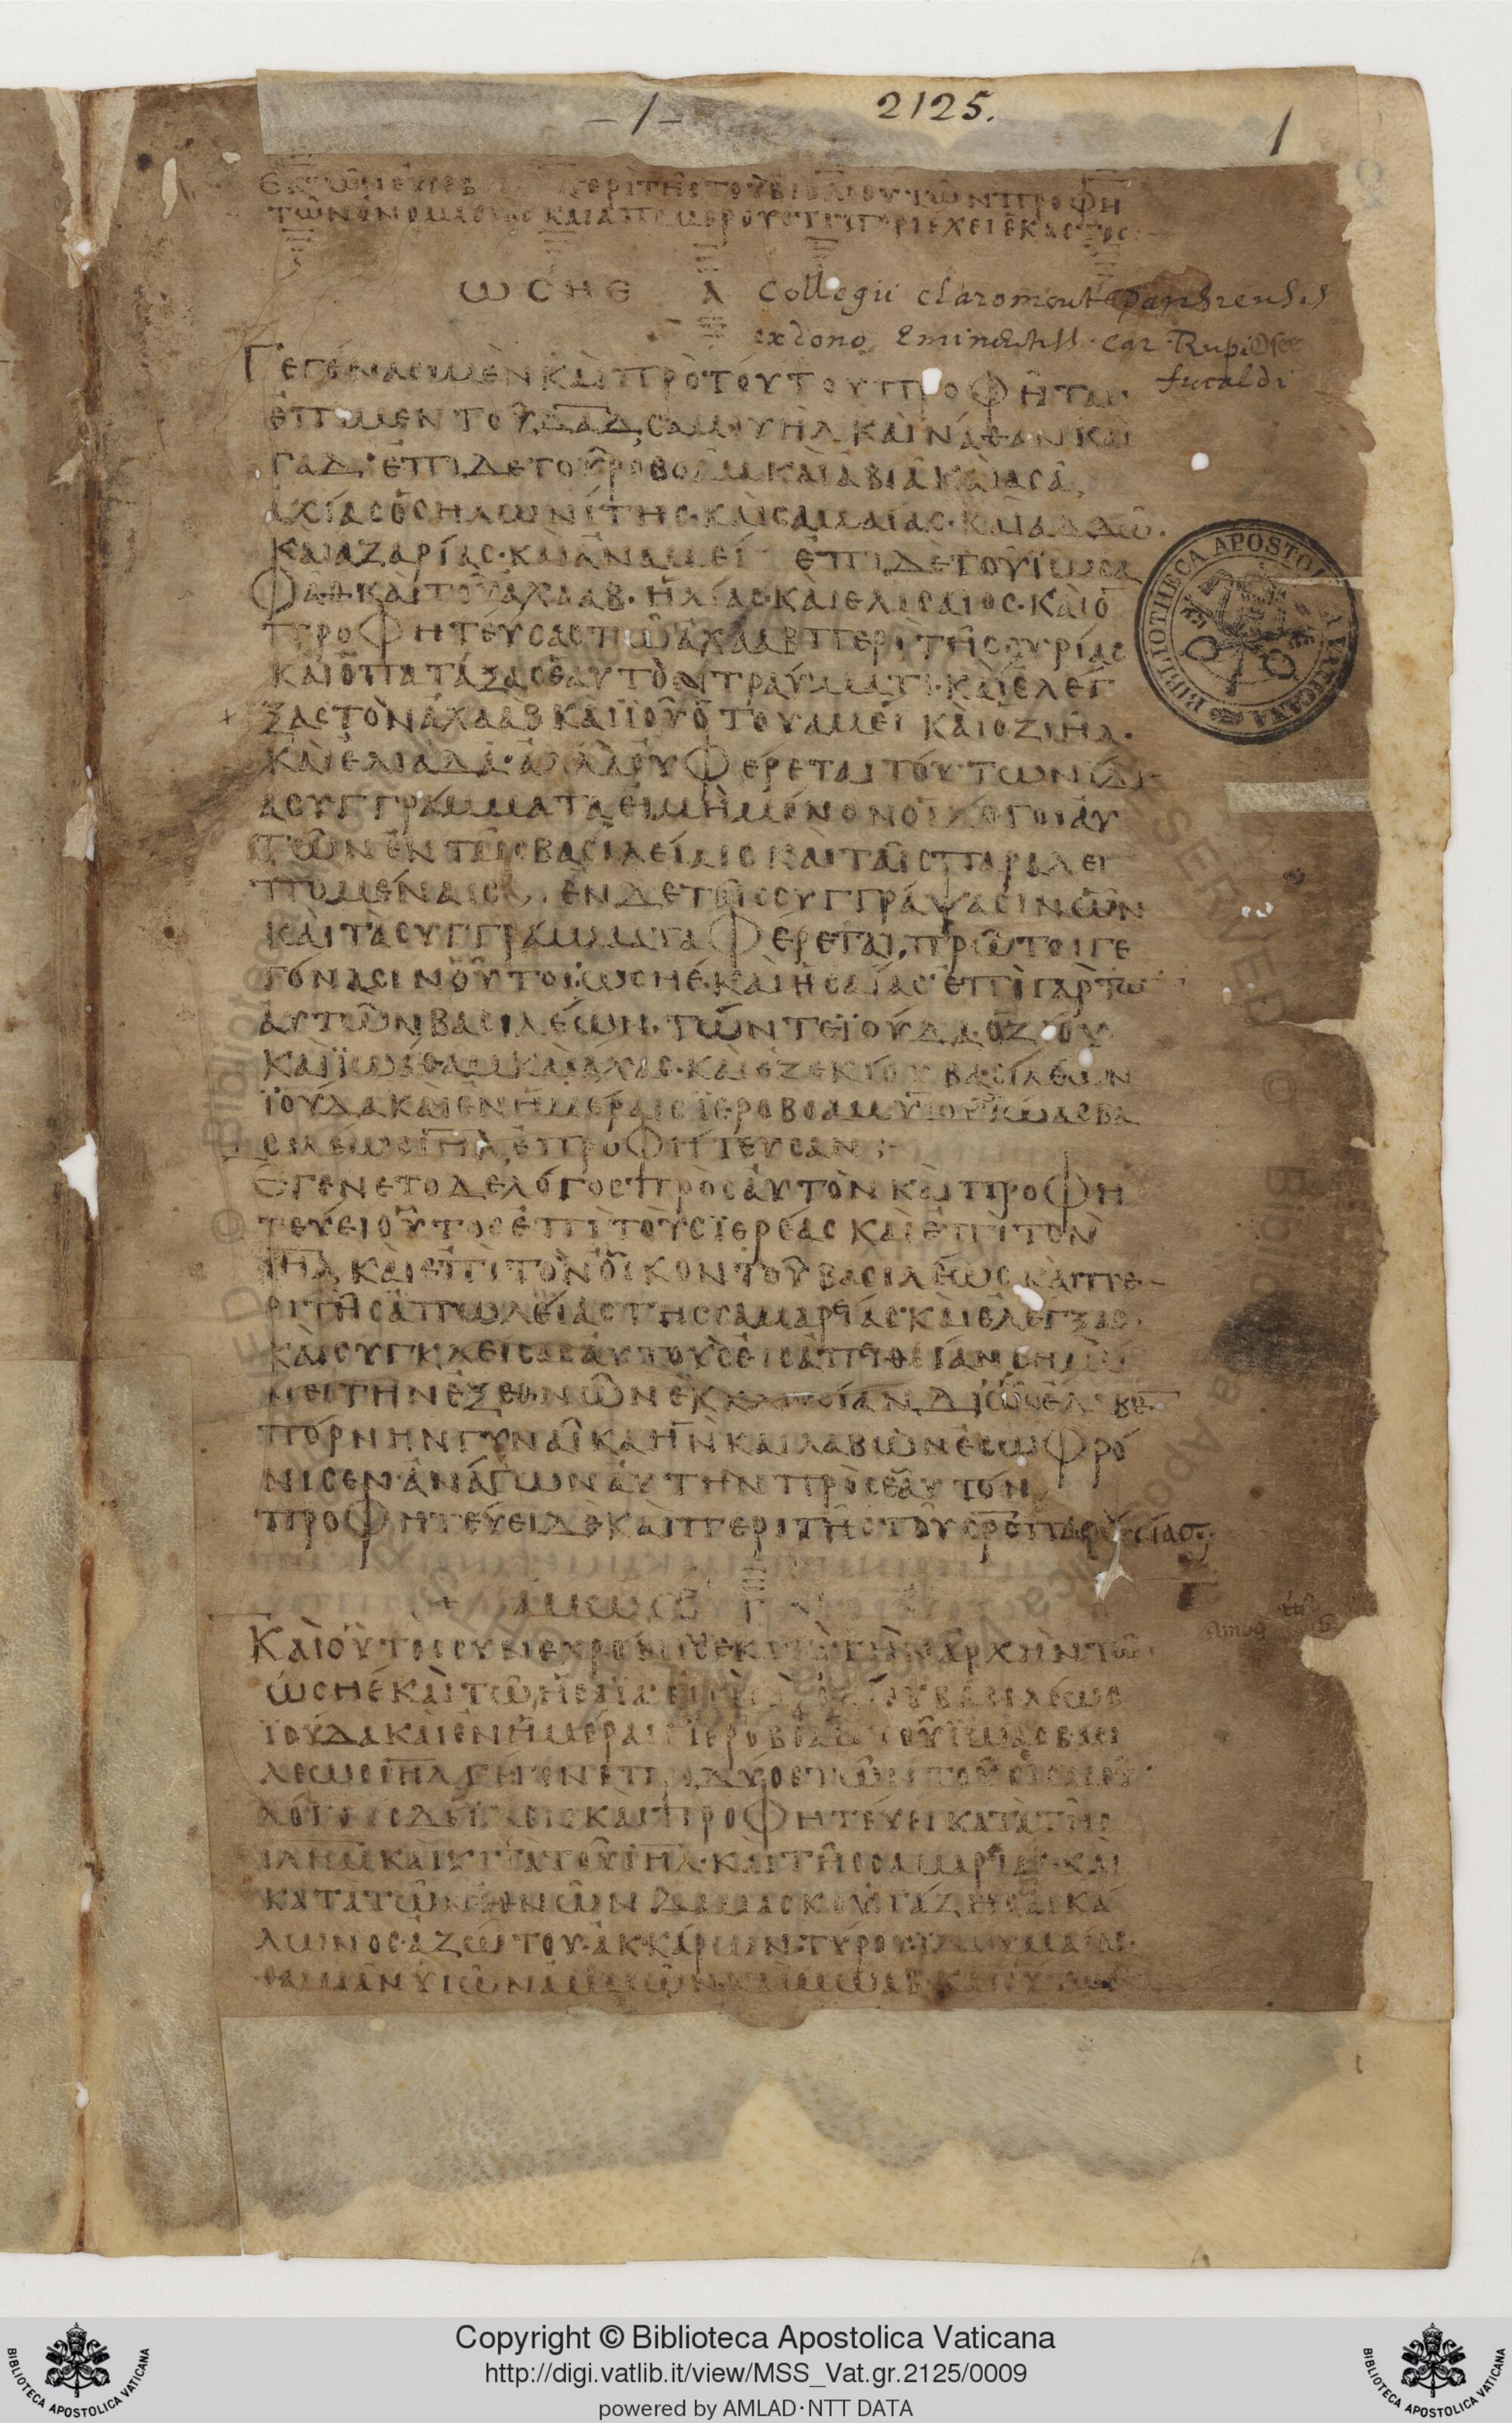 – 1 – 2125. 1
ΤΗϹ ΤΟΥ ΒΙΒΛΙΟΥ ΤΩΝ ΠΡΟΦΗ
ΤΩΝ ΚΑΙ ΑΠΟ ΜΕΡΟΥϹ ΤΙ ΠΕΡΙΕΧΕΙ ΕΚΑϹΤΟϹ
ΩϹΗΕ Α Collegii claromont Parisiensis
ex dono Eminentiss. Car. Rupi
fucaldi
ΓΕΓΟΝΑϹΙ ΜΕΝ ΚΑΙ ΠΡΟ ΤΟΥΤΟΥ ΠΡΟΦΗΤΑΙ·
ΕΠΙ ΜΕΝ ΤΟΥ ΔΑΔ ϹΑΜΟΥΗΛ ΚΑΙ ΝΑΘΑΝ ΚΑΙ
ΓΑΔ· ΕΠΙ ΔΕ ΤΟΥ ΡΟΒΟΑΜ ΚΑΙ ΑΒΙΑ ΚΑΙ ΑϹΑ,
ΑΧΙΑϹ Ο ϹΗΛΩΝΙΤΗϹ· ΚΑΙ ϹΑΜΑΙΑϹ· ΚΑΙ ΑΔΔΩ·
ΚΑΙ ΑΖΑΡΙΑϹ· ΚΑΙ ΑΝΑΜΕΙ ΕΠΙ ΔΕ ΤΟΥ ΪΩϹΑ
ΦΑΘ· ΚΑΙ ΤΟΥ ΑΧΑΑΒ· ΗΛΙΑϹ· ΚΑΙ ΕΛΙϹΑΙΟϹ· ΚΑΙ Ο
ΠΡΟΦΗΤΕΥϹΑϹ ΤΩ ΑΧΑΑΒ ΠΕΡΙ ΤΗϹ ϹΥΡΙΑϹ
ΚΑΙ Ο ΠΑΤΑΞΑϹ ΕΑΥΤΟΝ ΤΡΑΥΜΑΤΙ· ΚΑΙ ΕΛΕΓ
ΞΑϹ ΤΟΝ ΑΧΑΑΒ ΚΑΙ ΪΟΥ Ο ΤΟΥ ΑΜΕΙ ΚΑΙ ΟΖΙΗΛ·
ΚΑΙ ΕΛΙΑΔΑ· ΑΛΛ ΟΥ ΦΕΡΕΤΑΙ ΤΟΥΤΩΝ ΙΔΙ
Α ϹΥΓΓΡΑΜΜΑΤΑ ΕΙ ΜΗ ΜΟΝΟΝ ΟΙ ΛΟΓΟΙ ΑΥ
ΤΩΝ ΕΝ ΤΑΙϹ ΒΑϹΙΛΕΙΑΙϹ ΚΑΙ ΤΑΙϹ ΠΑΡΑΛΕΙ
ΠΟΜΕΝΑΙϹ· ΕΝ ΔΕ ΤΟΙϹ ϹΥΓΓΡΑΨΑϹΙΝ ΩΝ
ΚΑΙ ΤΑ ϹΥΓΓΡΑΜΜΑΤΑ ΦΕΡΕΤΑΙ, ΠΡΩΤΟΙ ΓΕ
ΓΟΝΑϹΙΝ ΟΥΤΟΙ· ΩϹΗΕ· ΚΑΙ ΗϹΑΪΑϹ· ΕΠΙ ΓΑΡ ΤΩ
ΑΥΤΩΝ ΒΑϹΙΛΕΩΝ· ΤΩΝ ΤΕ ΪΟΥΔΑ· ΟΖΙΟΥ
ΚΑΙ ΪΩΑΘΑΜ ΚΑΙ ΑΧΑϹ· ΚΑΙ ΕΖΕΚΙΟΥ ΒΑϹΙΛΕΩΝ
ΪΟΥΔΑ ΚΑΙ ΕΝ ΗΜΕΡΑΙϹ ΪΕΡΟΒΟΑΜ ΥΙΟΥ ΪΩΑϹ ΒΑ
ϹΙΛΕΩϹ ΙΗΛ ΕΠΡΟΦΗΤΕΥϹΑΝ :-
ΕΓΕΝΕΤΟ ΔΕ ΛΟΓΟϹ ΠΡΟϹ ΑΥΤΟΝ ΚΑΙ ΠΡΟΦΗ
ΤΕΥΕΙ ΟΥΤΟϹ ΕΠΙ ΤΟΥϹ ΪΕΡΕΑϹ ΚΑΙ ΕΠΙ ΤΟΝ
ΙΗΛ ΚΑΙ ΕΠΙ ΤΟΝ ΟΙΚΟΝ ΤΟΥ ΒΑϹΙΛΕΩϹ ΚΑΙ ΠΕ
ΡΙ ΤΗϹ ΑΠΩΛΕΙΑϹ ΤΗϹ ϹΑΜΑΡΕΙΑϹ· ΚΑΙ ΕΛΕΓΞΑϹ
ΚΑΙ ϹΥΓΚΛΕΙϹΑϹ ΑΥΤΟΥϹ ΕΙϹ ΑΠΕΙΘΕΙΑΝ ϹΗΜΑΙ
ΝΕΙ ΤΗΝ ΕΞ ΕΘΝΩΝ ΕΚΚΛΗϹΙΑΝ, ΔΙΟ ΕΛΑΒΕ
ΠΟΡΝΗΝ ΓΥΝΑΙΚΑ ΗΝ ΚΑΙ ΛΑΒΩΝ ΕϹΩΦΡΟ
ΝΙϹΕΝ· ΑΝΑΓΩΝ ΑΥΤΗΝ ΠΡΟϹ ΕΑΥΤΟΝ
ΠΡΟΦΗΤΕΥΕΙ ΔΕ ΚΑΙ ΠΕΡΙ ΤΗϹ ΤΟΥ ϹΡϹ ΠΑΡΟΥϹΙΑϹ
ΑΜΩϹ Β
ΚΑΙ ΟΥΤΟϹ ΤΗΝ ΑΡΧΗΝ ΤΩ
ΩϹΗΕ ΚΑΙ ΤΩ ΗϹΑΪΑ ΒΑϹΙΛΕΩϹ
ΪΟΥΔΑ ΚΑΙ ΕΝ ΗΜΕΡΑΙϹ ΪΕΡΟΒΟΑΜ ΤΟΥ ΪΩΑϹ ΒΑϹΙ
ΛΕΩϹ ΙΗΛ ΠΡΟ ΔΥΟ ΕΤΩΝ ΤΟΥ ϹΙϹΜΟΥ
ΚΑΙ ΠΡΟΦΗΤΕΥΕΙ ΚΑΤΑ ΤΗϹ
ΙΛΗΜ ΚΑΙ ΚΑΤΑ ΤΟΥ ΙΗΛ· ΚΑΙ ΤΗϹ ϹΑΜΑΡΕΙΑϹ· ΚΑΙ
ΚΑΤΑ ΤΩΝ ΕΘΝΩΝ ΔΑΜΑϹΚΟΥ· ΓΑΖΗϹ· ΑϹΚΑ
ΛΩΝΟϹ· ΑΖΩΤΟΥ· ΑΚΚΑΡΩΝ· ΤΥΡΟΥ· ΙΔΟΥΜΑΙΑϹ·
ΘΑΙΜΑΝ ΥΙΩΝ ΑΜΜΩΝ· ΚΑΙ ΜΩΑΒ· ΚΑΙ
BIBLIOTHECA APOSTOLICA VATICANA
Copyright © Biblioteca Apostolica Vaticana
http://digi.vatlib.it/view/MSS_Vat.gr.2125/0009
powered by AMLAD·NTT DATA
BIBLIOTECA APOSTOLICA VATICANA
BIBLIOTECA APOSTOLICA VATICANA